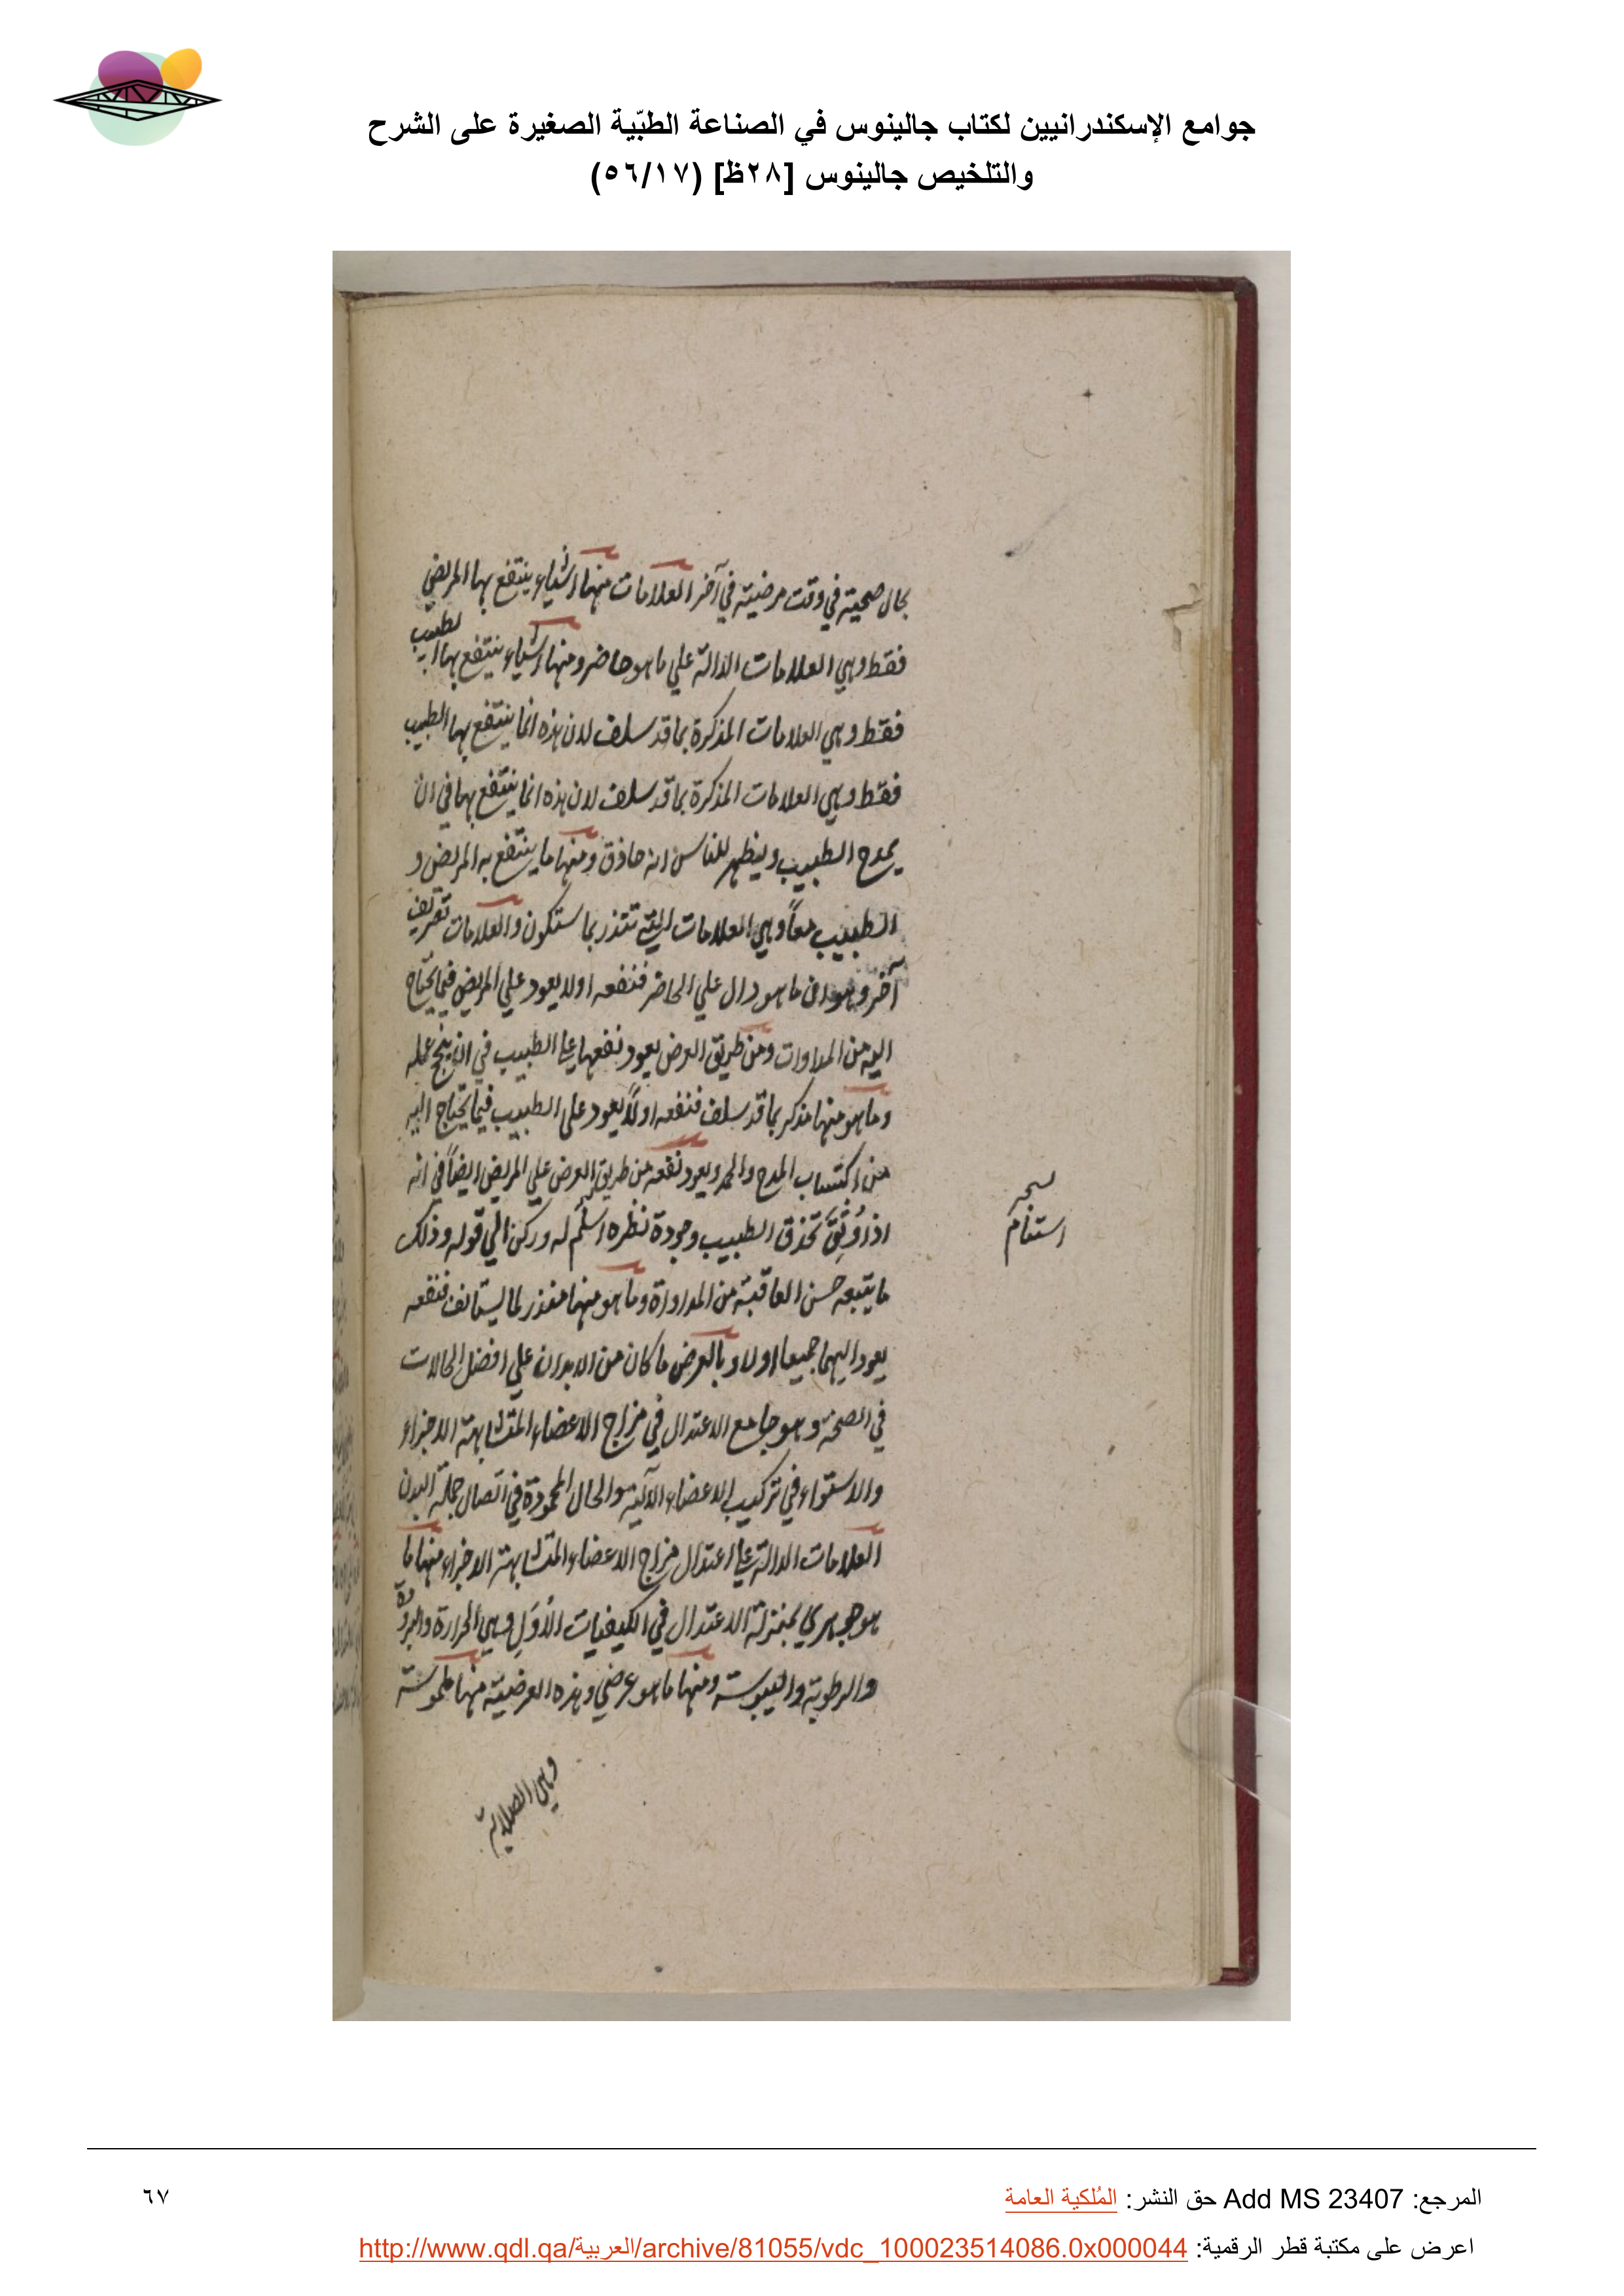 جوامع الإسكندرانيين لكتاب جالينوس في الصناعة الطبّية الصغيرة على الشرح
والتلخيص جالينوس [٢٨ظ] (٥٦/١٧)
بحال صحية في وقت مرضية في آخر العلامات منها اشياء ينتفع بها المريض
فقط وهي العلامات الدالة علي ما هو حاضر ومنها اشياء ينتفع بها الطبيب
فقط وهي العلامات المذكرة بما قد سلف لان هذه انما ينتفع بها الطبيب
فقط وهي العلامات المذكرة بما قد سلف لان هذه انما ينتفع بها في ان
يمدح الطبيب ويظهر للناس انه حاذق ومنها ما ينتفع به المريض و
الطبيب معاً وهي العلامات التي تنذر بما ستكون والعلامات تعريف
آخر وهو ان ما هو دال علي الحاضر فنفعه اولا يعود علي المريض فيما يحتاج
اليه من المداوات ومن طريق العرض يعود نفعها علي الطبيب في ان ينجح عمله
وما هو منها مذكر بما قد سلف فنفعه اولاً يعود على الطبيب فيما يحتاج اليه
من اكتساب المدح والحمد ويعود نفعه من طريق العرض علي المريض ايضاً في انه
اذا وُثِقَ بحذق الطبيب وجودة نظره استلم له وركن الي قوله وذلك
نسخه
استنام
ما يتبعه حسن العاقبة من المداواة وما هو منها منذر لما يستانف فنفعه
يعود اليهما جميعا اولا وبالعرض ما كان من الابدان علي افضل الحالات
في الصحة وهو جامع الاعتدال في مزاج الاعضاء المتشابهة الاجزاء
والاستواء في تركيب الاعضاء الآلية والحال المحمودة في اتصال جملة البدن
العلامات الدالة علي اعتدال مزاج الاعضاء المتشابهة الاجزاء منها ما
هو جوهري بمنزلة الاعتدال في الكيفيات الأُوَل وهي الحرارة والبرودة
والرطوبة واليبوسة ومنها ما هو عرضي وهذه العرضية منها ملموسة
وهي الصلابة
المرجع: Add MS 23407 حق النشر: المُلكية العامة
٦٧
اعرض على مكتبة قطر الرقمية: http://www.qdl.qa/العربية/archive/81055/vdc_100023514086.0x000044